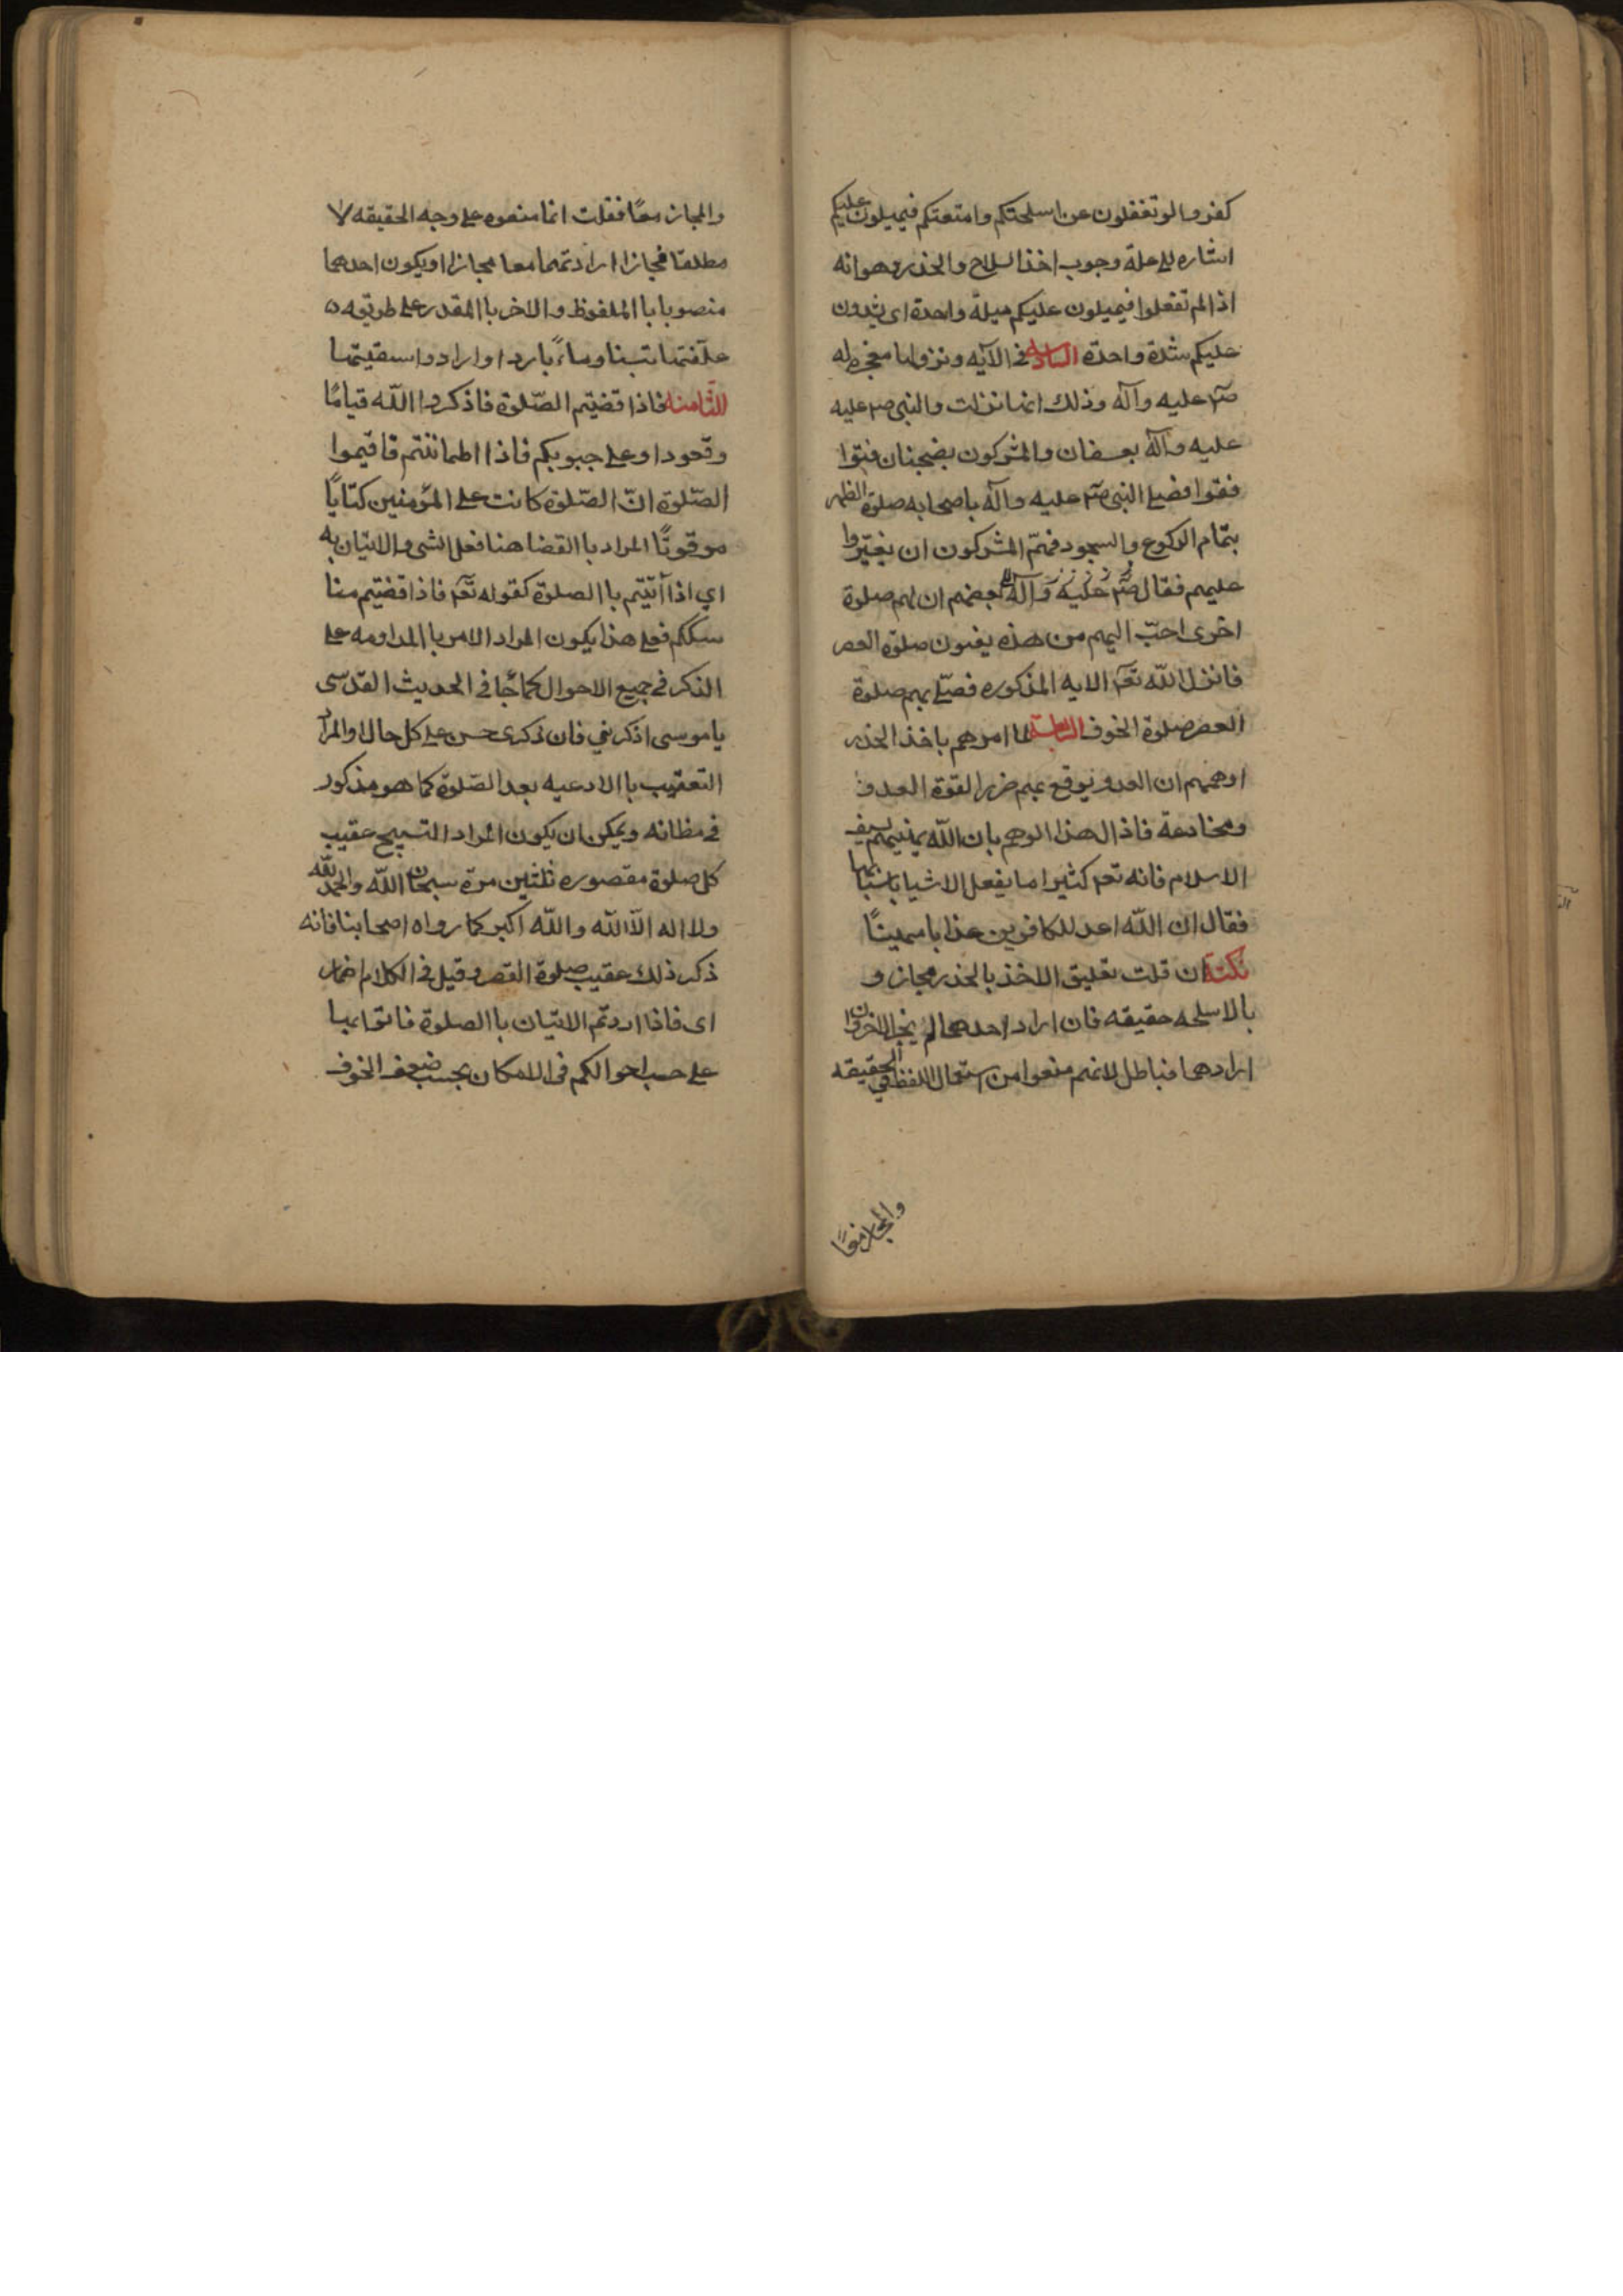 كفروا لو تغفلون عن اسلحتكم وامتعتكم فيميلون عليكم
اشاره الى علة وجوب اخذ السلاح والحذر وهو انه
اذا لم تفعلوا فيميلون عليكم ميلة واحدة اى يشدون
عليكم شدة واحدة السادسة فى الآيه ونزولها معجزه له
صم عليه وآله وذلك انها نزلت والنبى صم عليه
عليه وآله بعسفان والمشركون بضجنان فتوا
فقوا فصلى النبى صم عليه وآله باصحابه صلوة الظهر
بتمام الركوع والسجود فهمّ المشركون ان يغيّروا
عليهم فقال صم عليه وآله بعضهم ان لهم صلوة
اخرى احبّ اليهم من هذه يعنون صلوة العصر
فانزل اللّه تعم الايه المذكوره فصلى بهم صلوة
العصر صلوة الخوف السابعة لما امرهم باخذ الحذر
اوهمهم ان العدو يوقع بهم ضررا لقوة العدو
ومخادعة فاذال هذا الوهم بان اللّه يهنيهم بسيف
الاسلام فانه تعم كثيرا ما يفعل الاشيا باسبابها
فقال ان اللّه اعد للكافرين عذابا مهينًا
نكتة ان قلت تعليق الاخذ بالحذر مجاز و
بالاسلحه حقيقه فان اراد احدهما لم يجز الاخر وان
ارادهما فباطل لانهم منعوا من استعمال اللفظ فى الحقيقه
والمجاز معًا
والمجاز معًا فقلت انما منعوه على وجه الحقيقه لا
مطلقا فجازا ارادتهما معا مجازا او يكون احدهما
منصوبا با الملفوظ والاخر با المقدر على طريقه ه
علّفتها تبنا وماءً باردا وارادوا سقيتها
الثّامنه فاذا قضيتم الصّلوة فاذكروا اللّه قيامًا
وقعودا وعلى جبوبكم فاذا اطماننتم فاقيموا
الصّلوة انّ الصّلوة كانت على المؤمنين كتابًا
موقوتًا المراد با القضا هنا فعل الشى والاتيان به
اي اذا أتيتم با الصلوة كقوله تعم فاذا قضيتم منا
سككم فعلى هذا يكون المراد الامر با المداومه على
الذكر فى جميع الاحوال كما جٓا فى الحديث القدّسى
ياموسى اذكرنى فان ذكرى حسن على كل حال او المرا
التعقيب با الادعيه بعد الصّلوة كما هو مذكور
فى مظانه ويمكن ان يكون المراد التسبيح عقيب
كل صلوة مقصوره ثلثين مرة سبحان اللّه والحمد للّه
ولا اله الاّ اللّه واللّه اكبر كما رواه اصحابنا فانه
ذكر ذلك عقيب صلوة القصر وقيل فى الكلام اضمار
اى فاذا اردتم الاتيان با الصلوة فاتوا بها
على حسب احوالكم فى الامكان بحسب ضعف الخوف